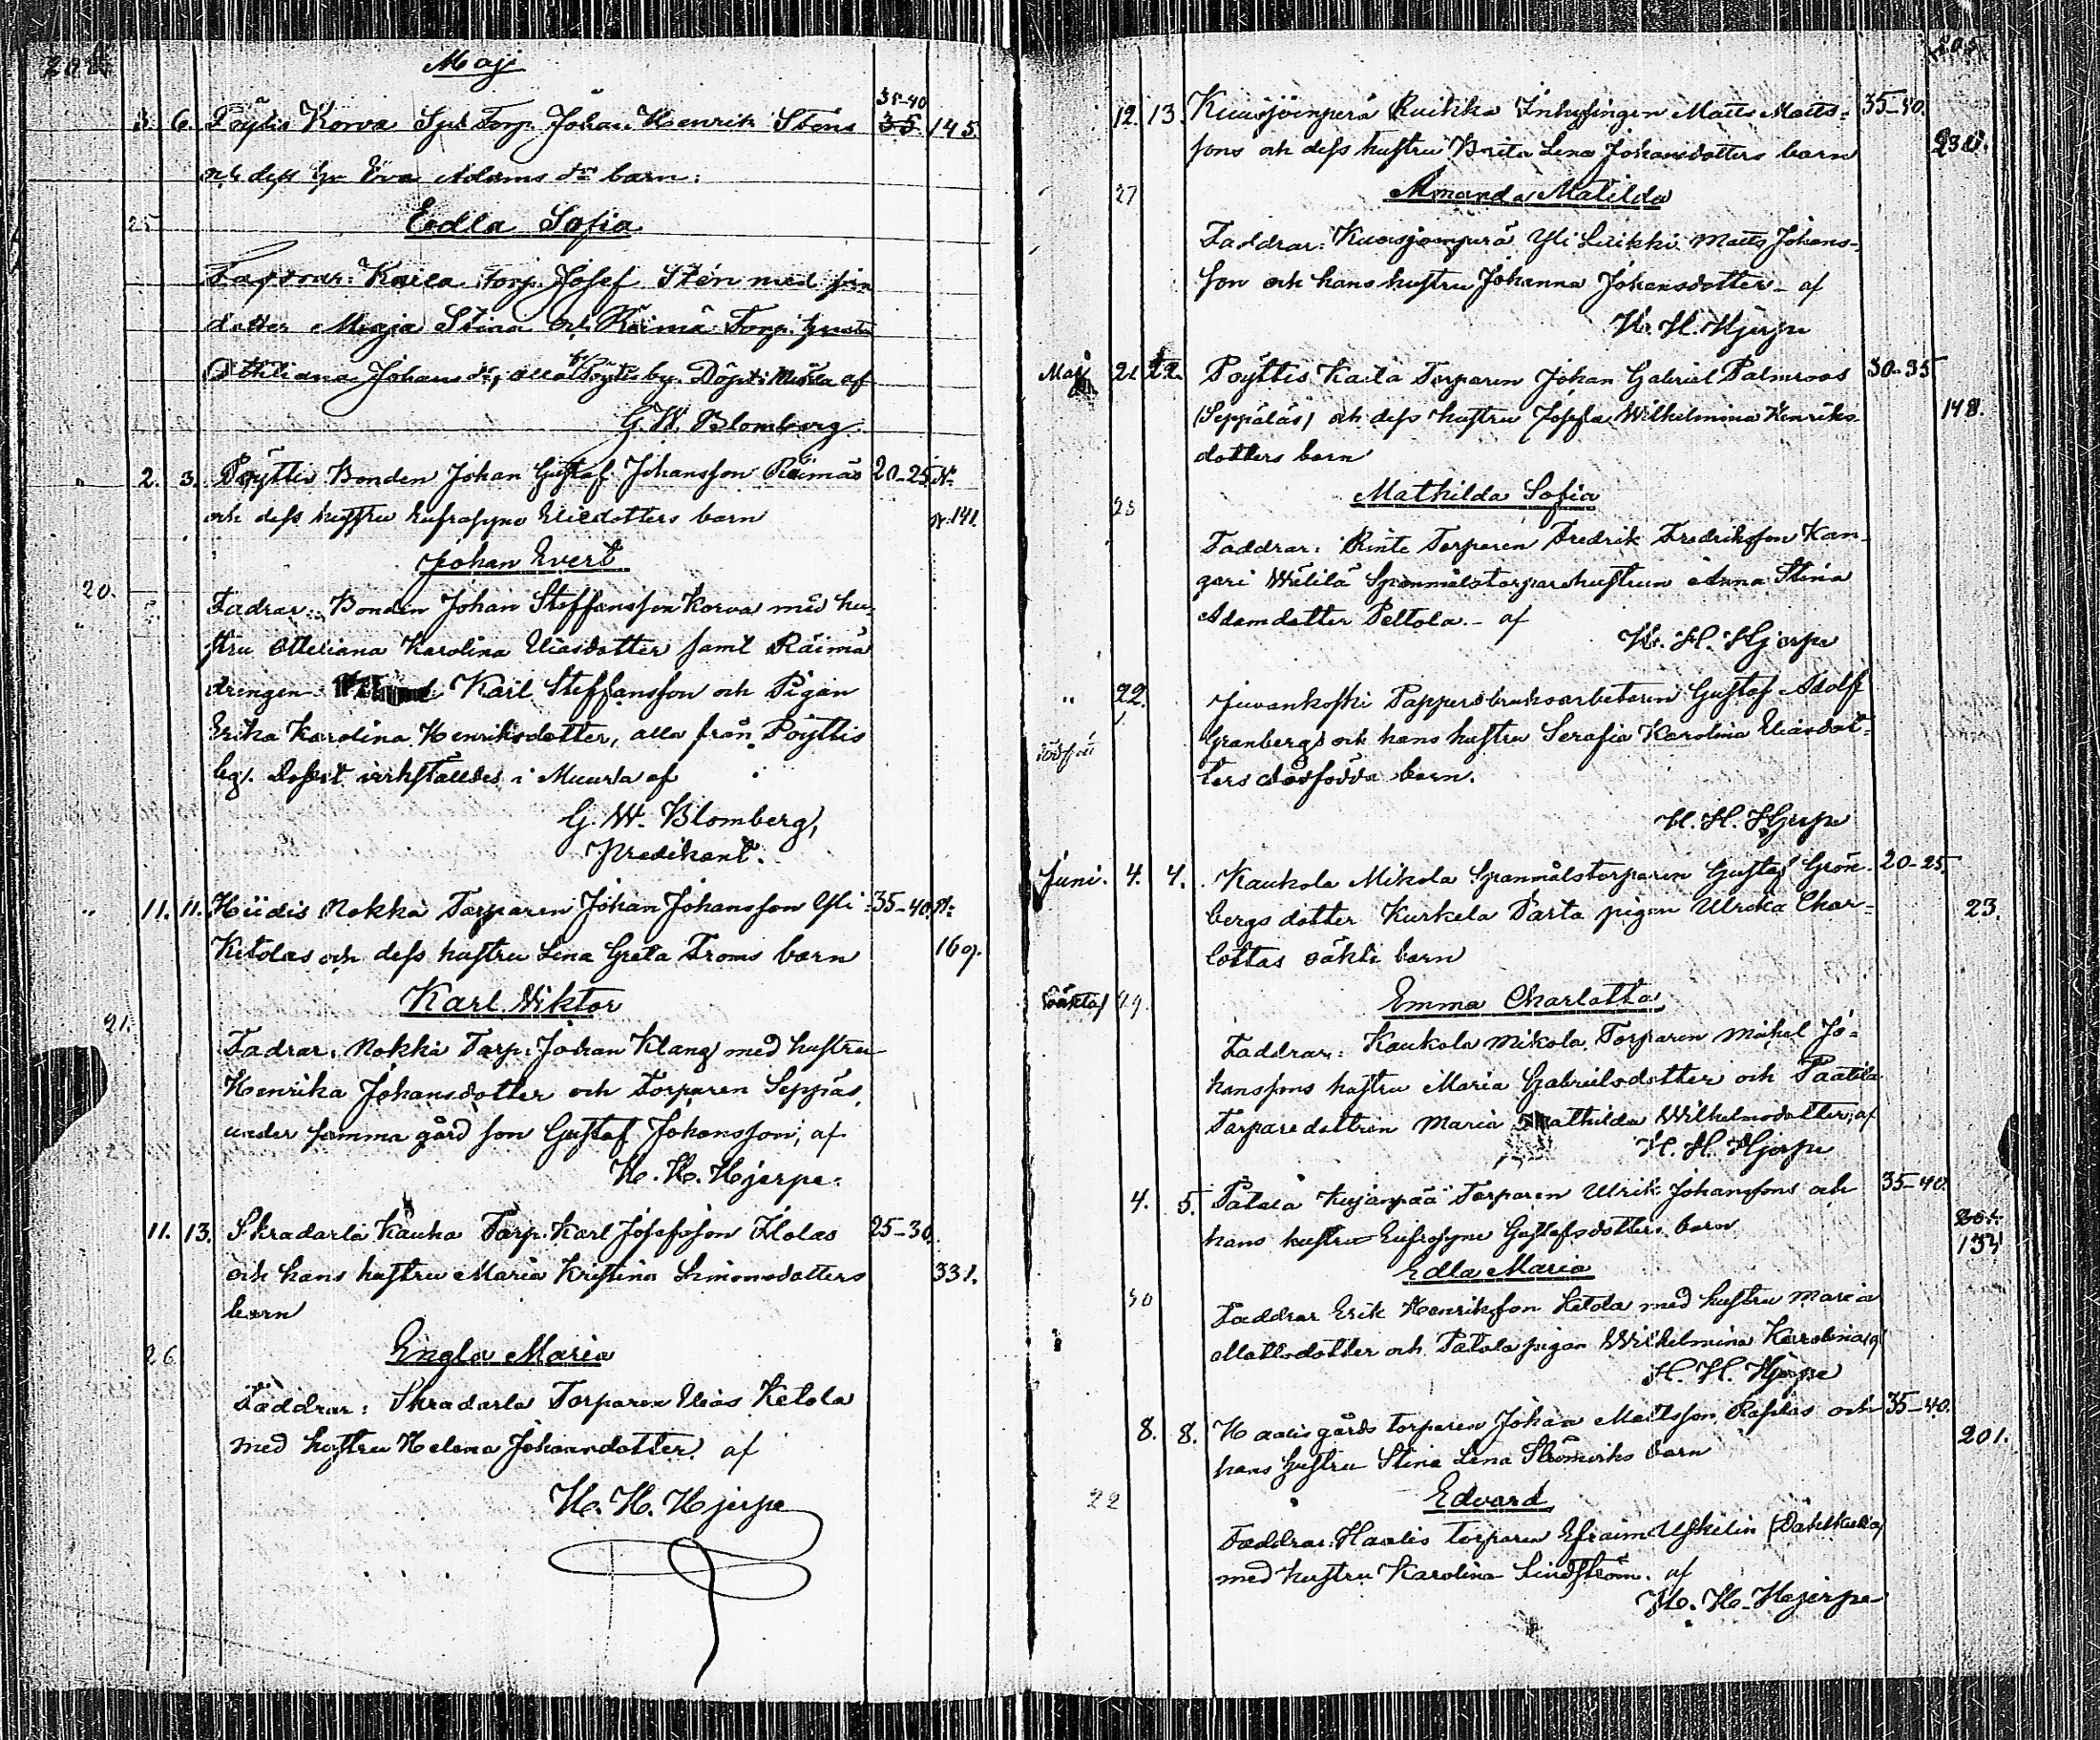 204
Maj
35-40
3. 6. Pöytis Korva Spl. Torp. Johan Henrik Sténs 35 145
och dess hu Eva Adams dr barn.
25 Eedla Sofia
Faddrar: Kaila torp. Josef Stén med sin
dotter Maja Stina och Räimä Torp. hustr
Othiliana Johans dr, alla fr Pöytis by. Döpt i Muurla af
G. W. Blomberg
" 2. 3. Pöyttis Bonden Johan Gustaf Johansson Räimäs 20-25 N:
och dess hustru Eufrosyne Eliedotters barn N: 141
Johan Evert
20. Fadrar: Bonden Johan Steffansson Korva med hu-
stru Otteriana Karolina Eliasdotter samt Räimä
drengen Karl Steffansson och Pigan
Erika Karolina Henriksdotter, alla från Pöyttis
by. Dopet verkställdes i Muurla af
G. W. Blomberg,
Predikant.
" 11. 11. Hiidis Nokka Torparen Johan Johansson Yli- 35-40 N:
Ketolas och dess hustru Lina Greta Froms barn 169.
Karl Viktor
21. Fadrar: Nokka Torp. Johan Klang med hustru
Henrika Johansdotter och Torparen Seppäs
under samma gård son Gustaf Johansson, af
H. H. Hjerpe.
11. 13. Skradarla Kauha Torp. Karl Josefsson Iholas 25-30.
och hans hustru Maria Kristina Simonsdotters 331.
barn
26 Engla Maria
Faddrar: Skradarla Torparen Elias Ketola
med hustru Helena Johansdotter af
H. H. Hjerpe
205
12. 13. Kuusjoenperä Kuikka Inhysingen Matts Matts- 35-40.
sons och dess hustru Brita Lena Johansdotters barn 232.
27 Amanda Matilda
Faddrar: Kuusjoenperä Yli Luikki Matts Johans-
son och hans hustru Johanna Johansdotter af
H. H. Hjerpe
Maj 21 22. Pöyttis Kaila Torparen Johan Gabriel Palmroos 30-35
(Seppäläs) och dess hustru Josefa Wilhelmina Henriks- 148.
dotters barn
28 Mathilda Sofia
Faddrar: Rinte Torparen Fredrik Fredriksson Kan-
gari Wälilä Spannmålstorparehustrun Anna Stina
Adamdotter Peltola. af
H. H. Hjerpe
" 22. Juvankoski Pappersbruksarbetaren Gustaf Adolf
Granbergs och hans hustru Serafia Karolina Eliasdot-
dödfödt ters dödfödda barn.
H. H. Hjerpe
Juni. 4. 4. Kaukola Mikola Spanmålstorparen Gustaf Grön- 20-25
bergs dotter Kurkela Parta pigan Ulrika Char- 23.
lottas oäkta barn
oäkta 29. Emma Charlotta
Faddrar: Kaukola Mikola Torparen Mickel Jo-
hanssons hustru Maria Gabrielsdotter och Paatila
Torparedottren Maria Mathilda Wilhelmsdotter, af
H. H. Hjerpe
4. 5. Patala Kujanpää Torparen Ulrik Johanssons och 35-40.
hans hustru Eufrosyne Gustafsdotters barn 201. 153
Edla Maria
30 Faddrar Erik Henriksson Ketola med hustru Maria
Mattsdotter och Patala pigan Wilhelmina Karolina, af
H. H. Hjerpe
8. 8. Haalis gårds torparen Johan Mattsson Rafilas och 35-40.
hans hustru Stina Lena Strömerks barn 201.
22 Edvard
Faddrar: Haalis torparen Efraim Uskelin (Dahlkulla)
med hustru Karolina Lindström. af
H. H. Hjerpe